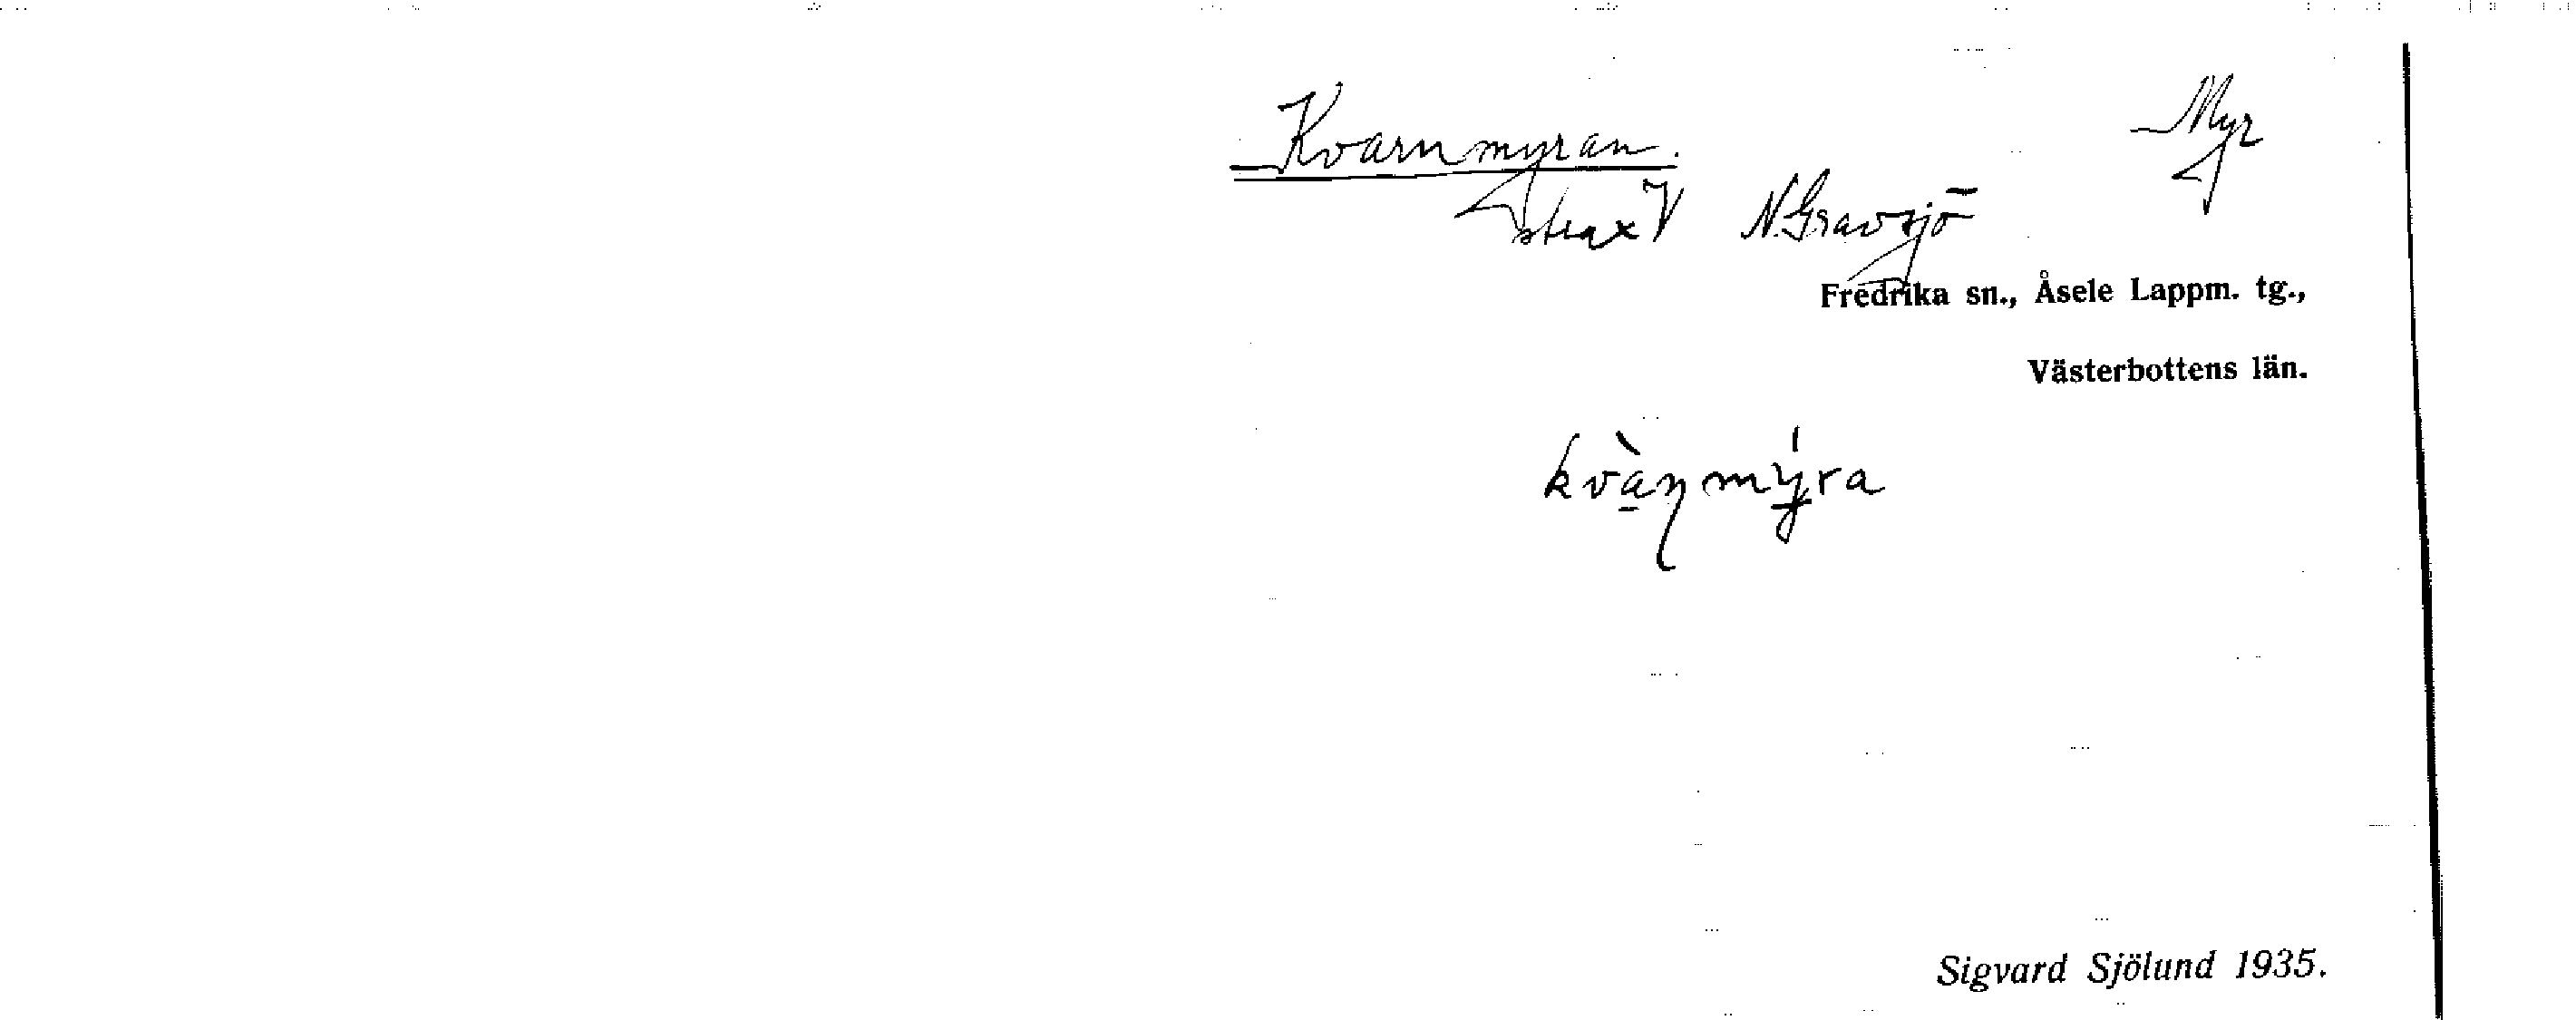 Kvarnmyran. Myr
strax V N.Gravsjö
Fredrika sn., Åsele Lappm. tg.,
Västerbottens län.
kvàṇmýra
Sigvard Sjölund 1935.